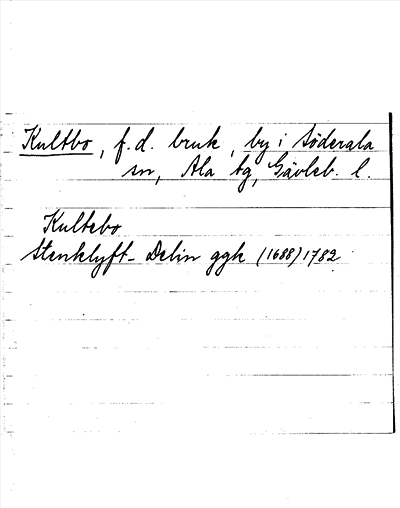 Kultbo, f.d. bruk, by i Söderala
sn, Ala tg, Gävleb. l.
Kultebo
Stenklyft- Delin ggk (1688) 1782